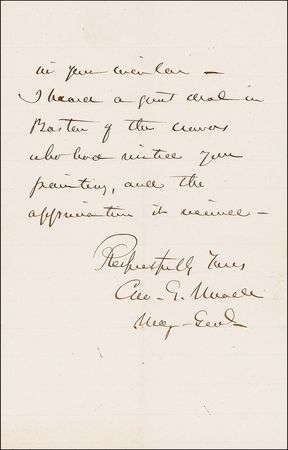 in your circular —
I heard a great deal in
Boston of the crowds
who had visited your
painting, and the
appreciation it received —
Respectfully Yours
Geo. G. Meade
Maj-Genl